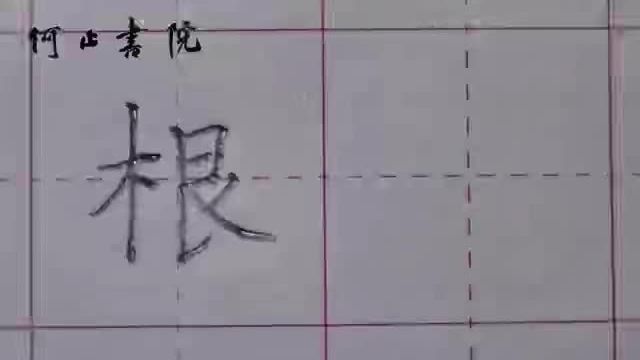 何止書院
根